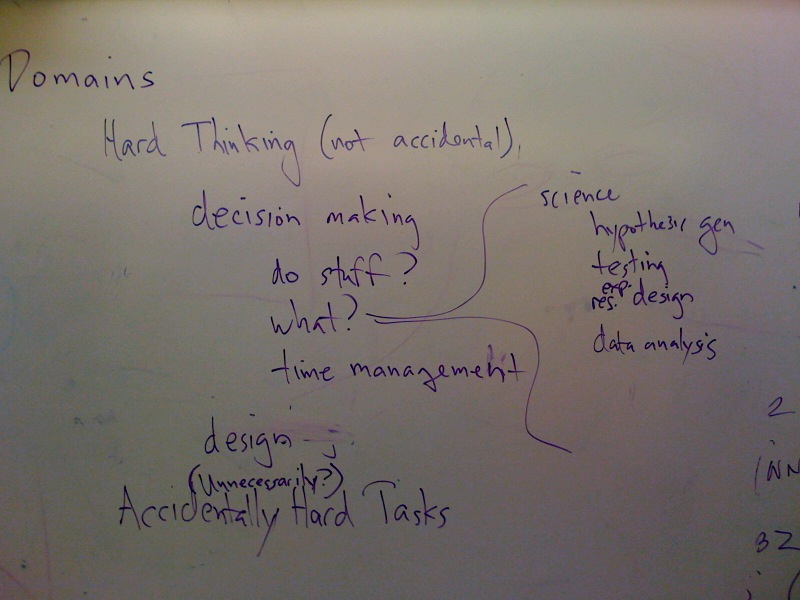 Domains
Hard Thinking (not accidental),
decision making
do stuff?
what?
time management
design
(Unnecessarily?)
Accidentally Hard Tasks
science
hypothesis gen
testing
exp.
res. design
data analysis
2
INN
3Z